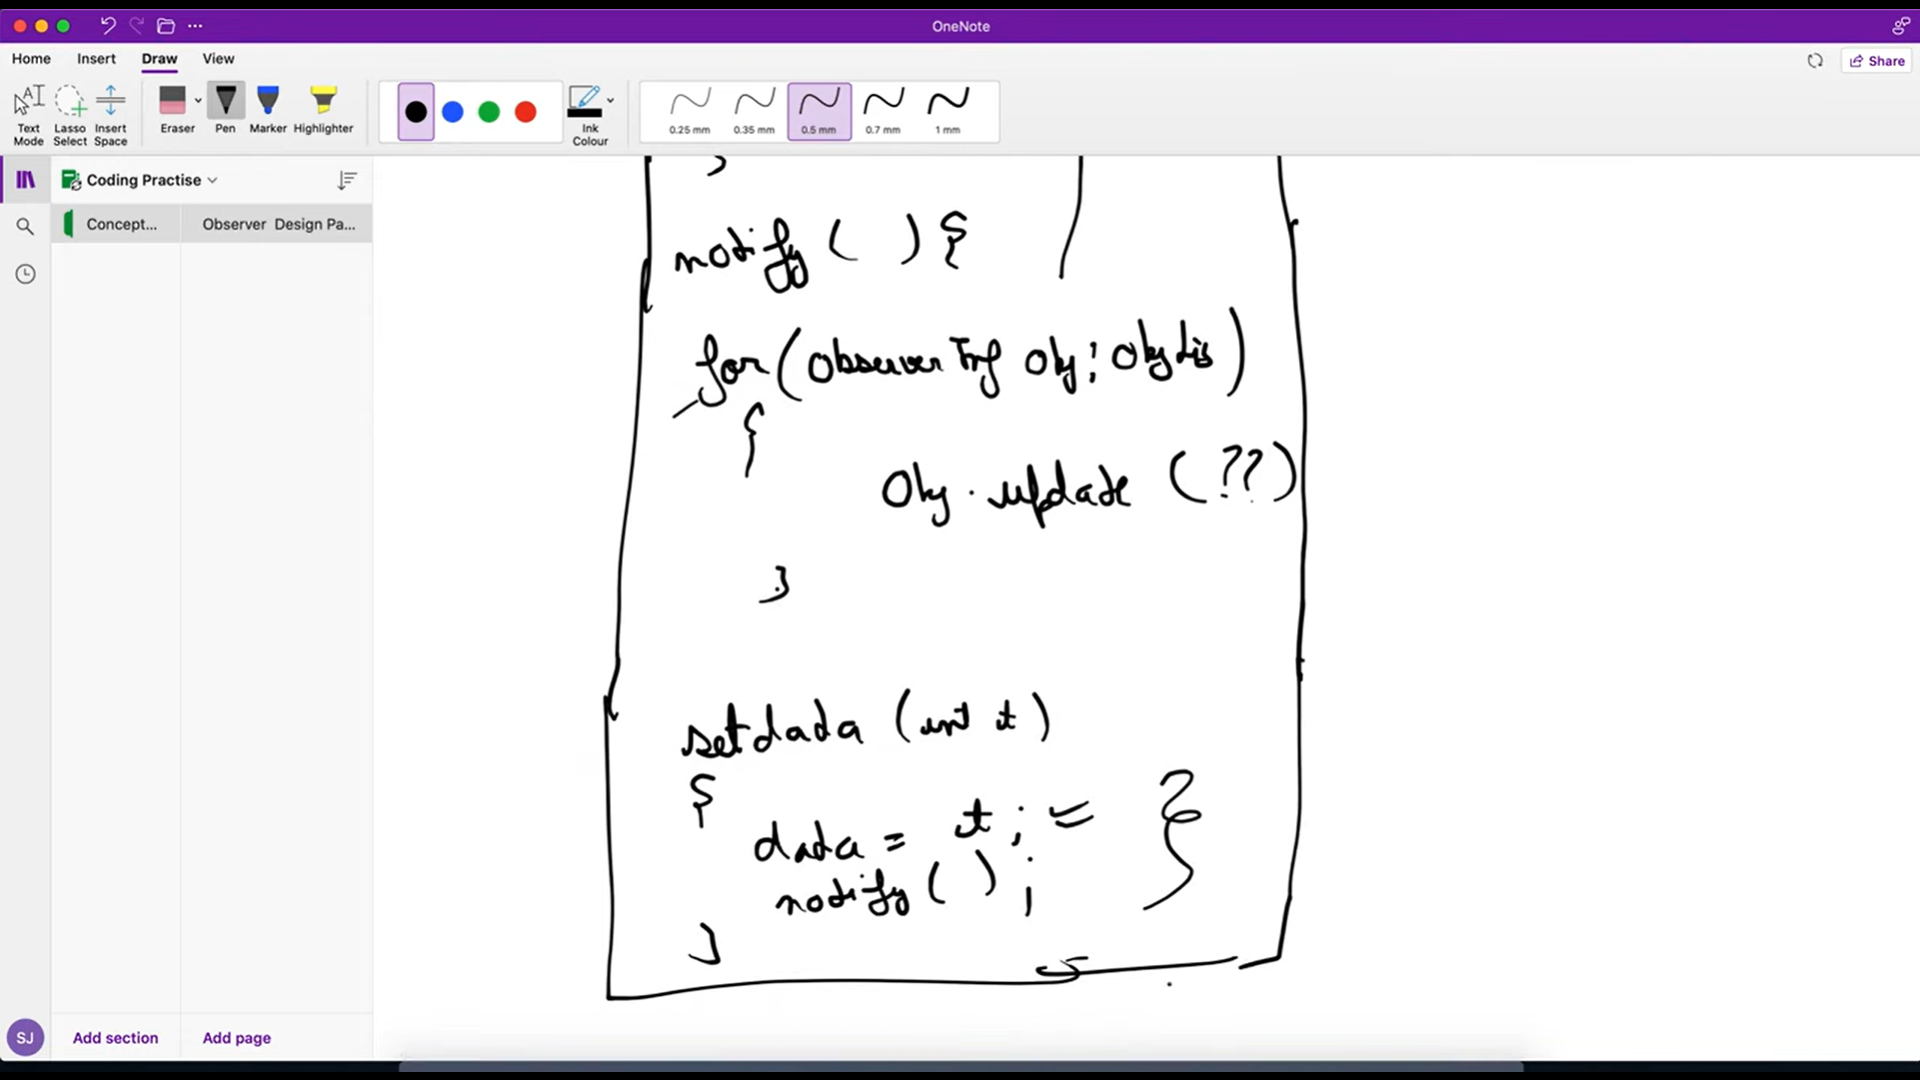 OneNote
Home Insert Draw View
Share
Text Mode
Lasso Select
Insert Space
Eraser
Pen
Marker
Highlighter
Ink Colour
0.25 mm
0.35 mm
0.5 mm
0.7 mm
1 mm
Coding Practise
Concept...
Observer Design Pa...
}
notify ( ) {
for ( Observer Inf Obj : Obj Lis )
{
Obj . update ( ?? )
}
setdada ( int t )
{
data = t ; =
notify ( ) ;
}
SJ
Add section
Add page